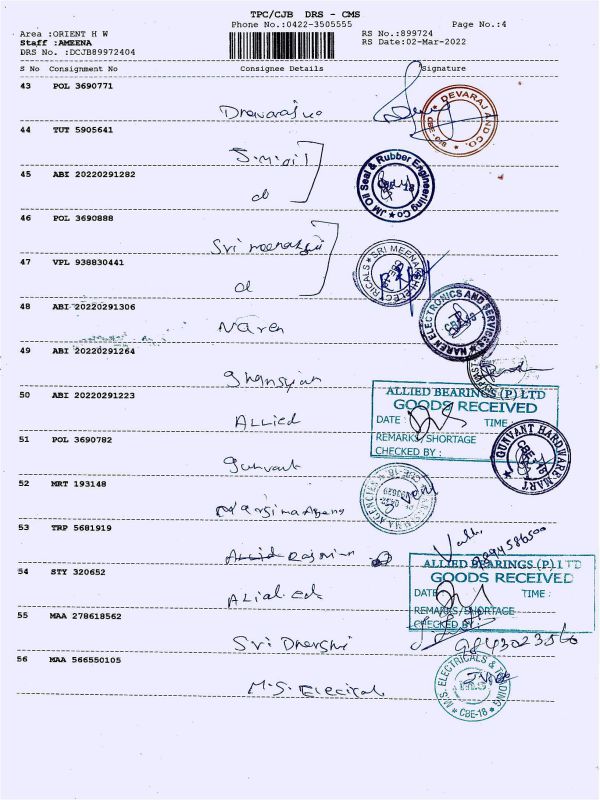 TPC/CJB DRS - CMS
Phone No.:0422-3505555 Page No.:4
Area :ORIENT H W RS No.:899724
Staff :AMEENA RS Date:02-Mar-2022
DRS No. :DCJB89972404
S No Consignment No Consignee Details Signature
43 POL 3690771
DEVARAJ AND CO.
44 TUT 5905641
45 ABI 20220291282
JM Oil Seal & Rubber Engineering Co
46 POL 3690888
Sri meenakshi
47 VPL 938830441
SRI MEENAKSHI ELECTRICALS
48 ABI 20220291306
Naren
NAREN ELECTRONICS AND SERVICES
49 ABI 20220291264
50 ABI 20220291223
Allied
ALLIED BEARINGS (P) LTD
GOODS RECEIVED
DATE : TIME :
REMARKS/SHORTAGE
CHECKED BY :
51 POL 3690782
gunvant
GUNVANT HARDWARE MART
52 MRT 193148
53 TRP 5681919
54 STY 320652
ALLIED BEARINGS (P) LTD
GOODS RECEIVED
DATE TIME :
REMARKS/SHORTAGE
CHECKED BY
55 MAA 278618562
Sri Dharshi
56 MAA 566550105
M.S. Elecital
M.S. ELECTRICALS & TRADING
CBE-18